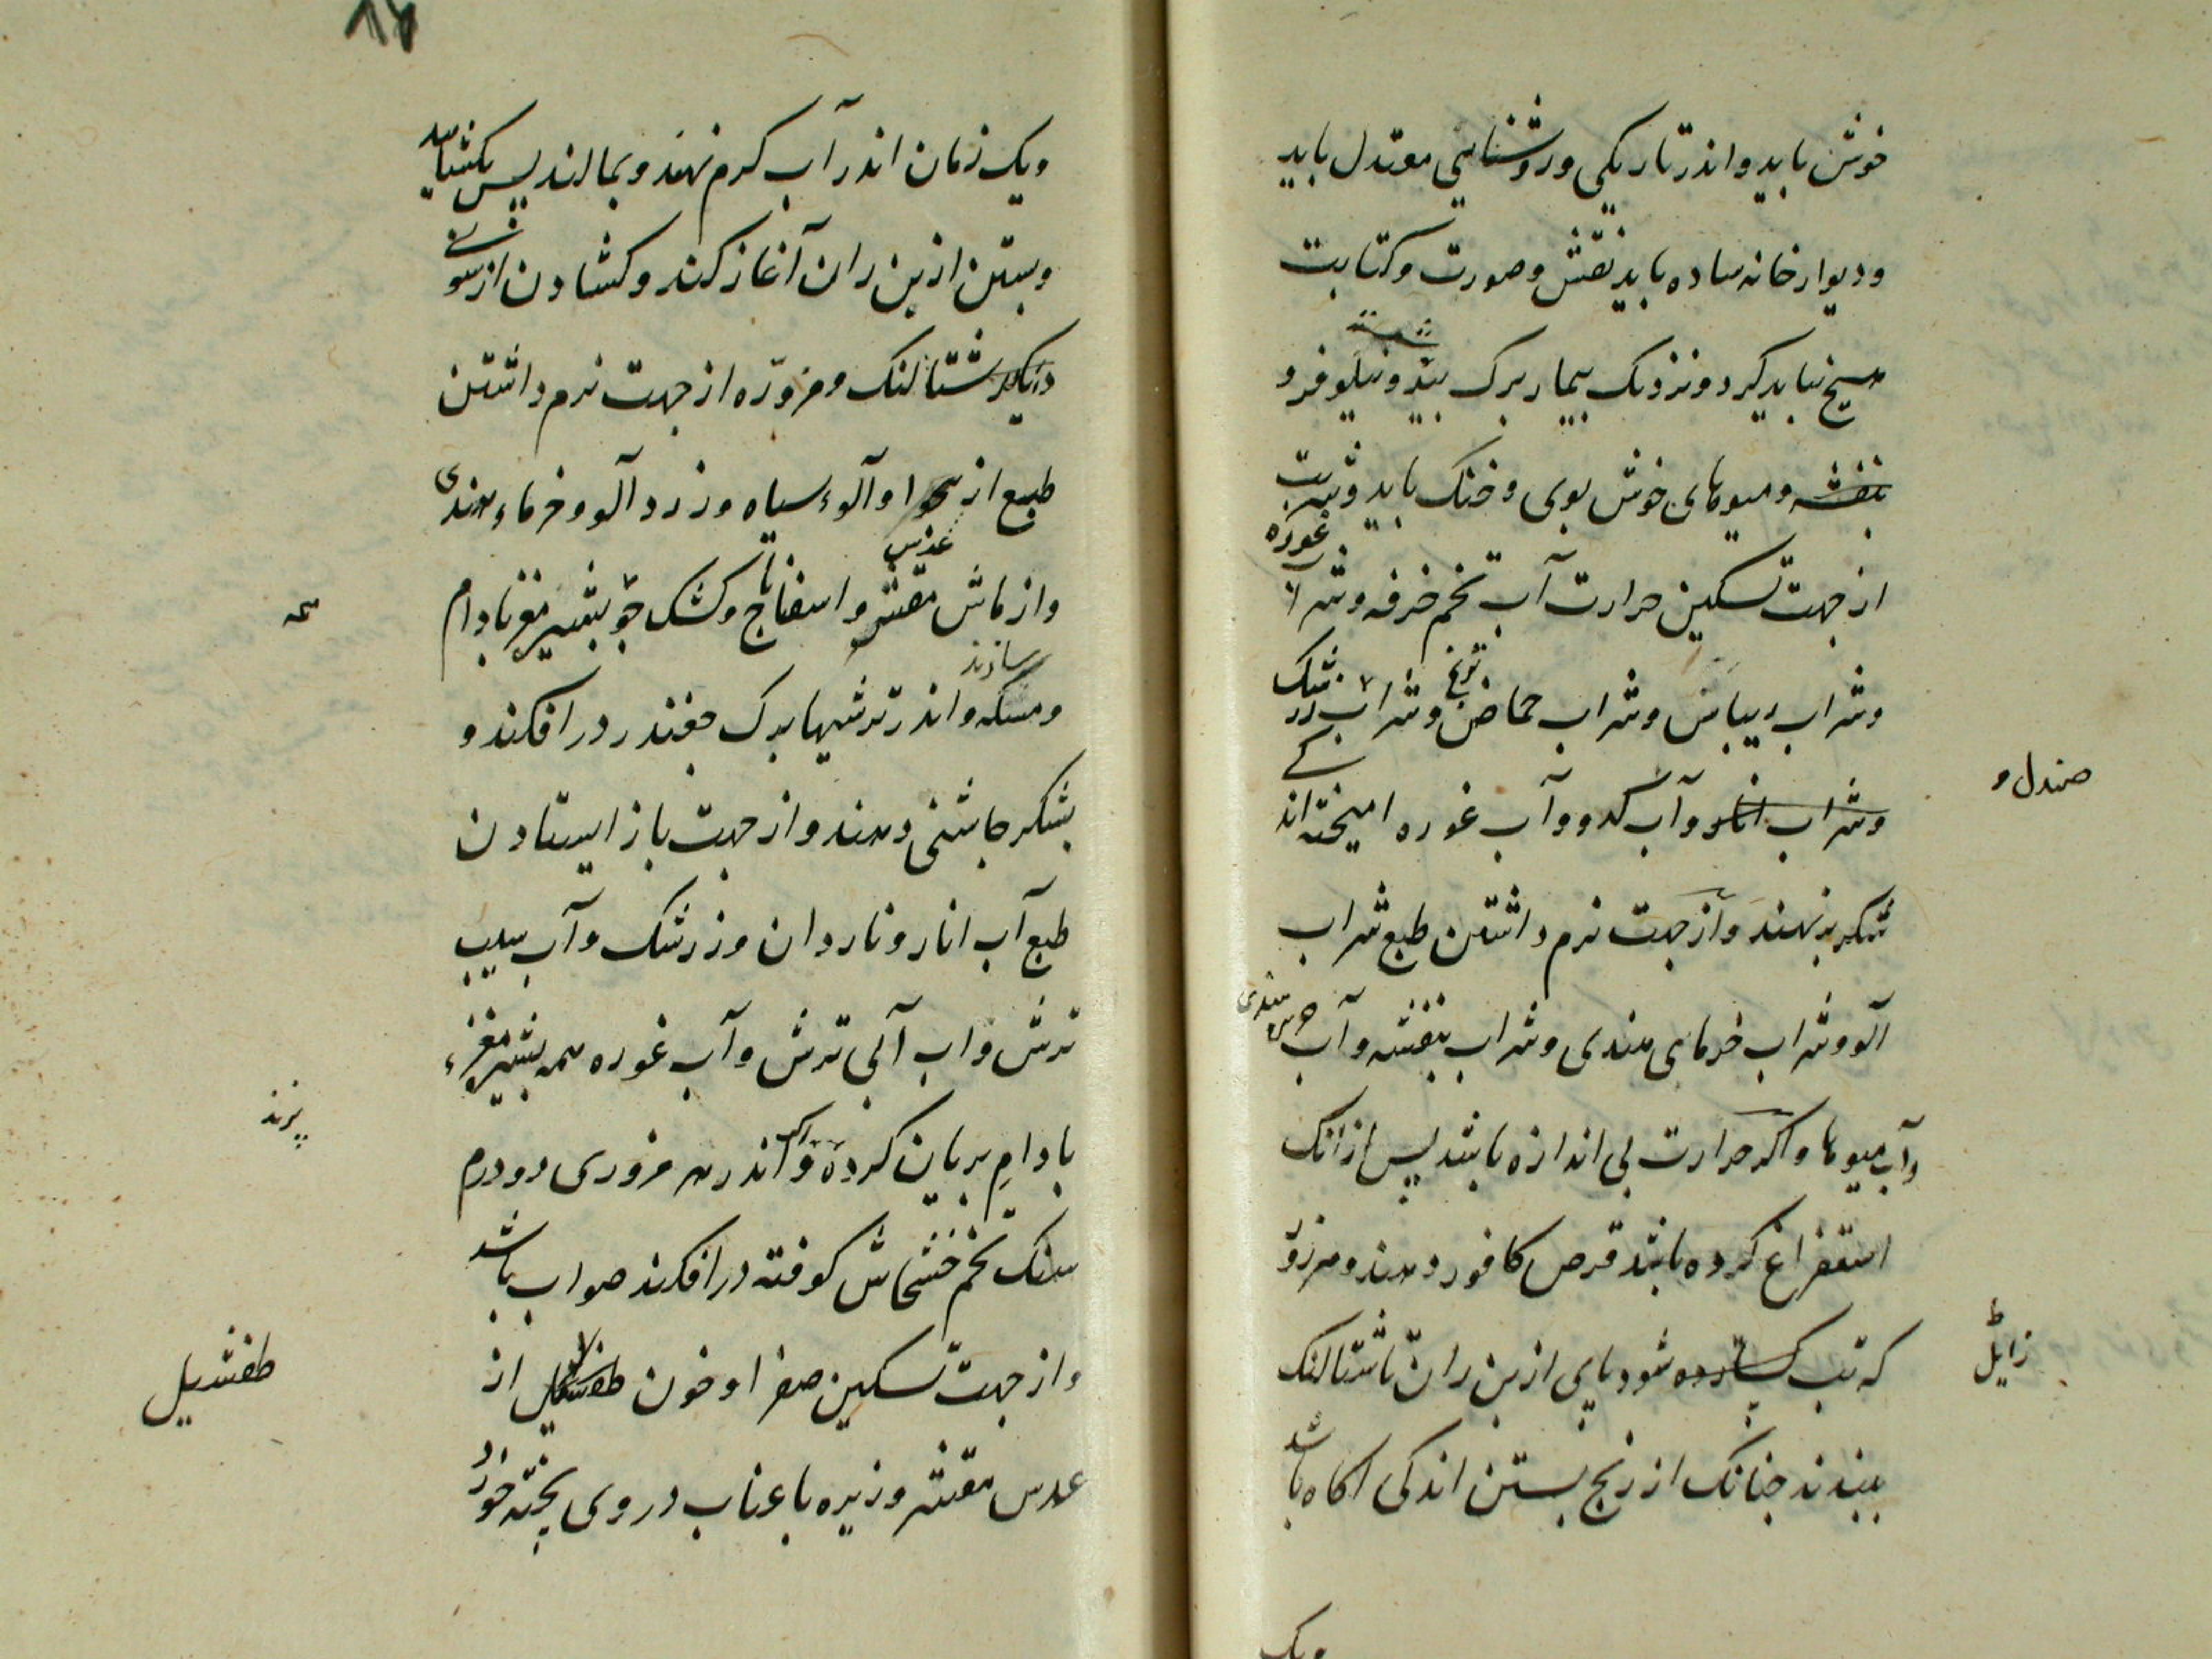 خوش باید و اندر تاریکی و روشنایی معتدل باید
و دیوار خانه ساده باید نقش و صورت و کتابت
هیچ نباید کرد و نزدیک بیمار برک بید و نیلوفر و
بنفشه و میوهای خوش بوی و خنک باید و شربت
از جهت تسکین حرارت آب تخم خرفه و شراب غوره
و شراب ریباس و شراب حماض ترنج و شراب زرشک
صندل و
و شراب انار و آب کدو و آب غوره امیخته اند
شکر بزنهند و از جهت نرم داشتن طبع شراب
آلو و شراب خرمای هندی و شراب بنفشه و آب
و آب میوها و اکر حرارت بی اندازه باشد پس ازانک
استفراغ کرده باشد قرص کافور دهند و هر روز
که تب کسارده شود پای از بن ران تا شتالنک
زایل
ببندند جنانک از رنج بستن اندکی اکاه باشد
ویک
ویک زمان اندر آب کرم نهند و بمالند پس بکشایند
و بستن از بن ران آغاز کند و کشادن از سوی
شتالنک و مزوره از جهت نرم داشتن
طبع از و آلوء سیاه و زرد آلو و خرماء هندی
و از ماش مقشر و عدس و اسفاناج و کشک جو بشیر مغز بادام
سازند
و مسکه و اندر ترشیها برک جغندر در افکند و
بشکر جاشنی دهند و از جهت باز ایستادن
طبع آب انار و ناردان و زرشک و آب سیب
ترش و اب آبی ترش و آب غوره همه بشیر مغزء
پزند
بادام بریان کرده و اکر اندر هر مزوری دو درم
سنک تخم خشخاش کوفته در افکند صواب باشد
و از جهت تسکین صفرا و خون طفشیل از
طفشیل
عدس مقشر و زیره با عناب در وی پخته خورد